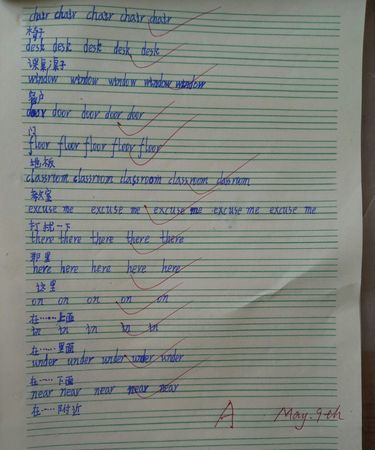 chair chair chair chair chair
椅子
desk desk desk desk desk
课桌桌子
window window window window window
窗户
door door door door door
门
floor floor floor floor floor
地板
classroom classroom classroom classroom classroom
教室
excuse me excuse me excuse me excuse me excuse me
打扰一下
there there there there there
那里
here here here here here
这里
on on on on on
在……上面
in in in in in
在……里面
under under under under under
在……下面
near near near near near
在……附近
A May. 9th